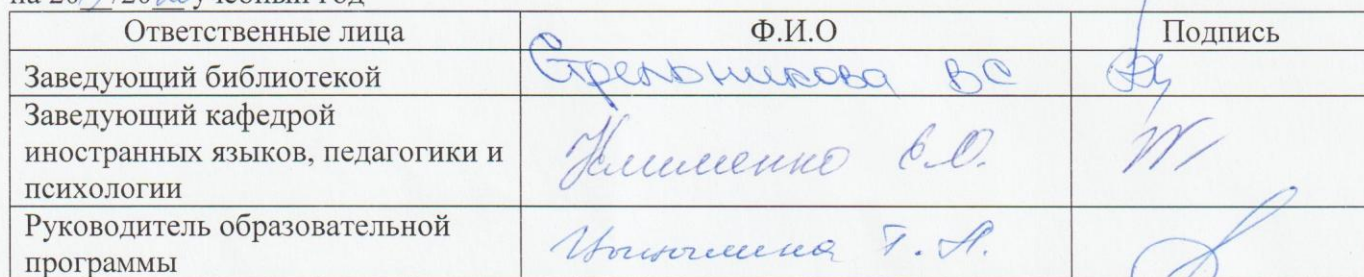 на 20 /20 учебный год
Ответственные лица Ф.И.О Подпись
Заведующий библиотекой Стрельникова ВС
Заведующий кафедрой
иностранных языков, педагогики и
психологии Клименко Е.О.
Руководитель образовательной
программы Т. А.